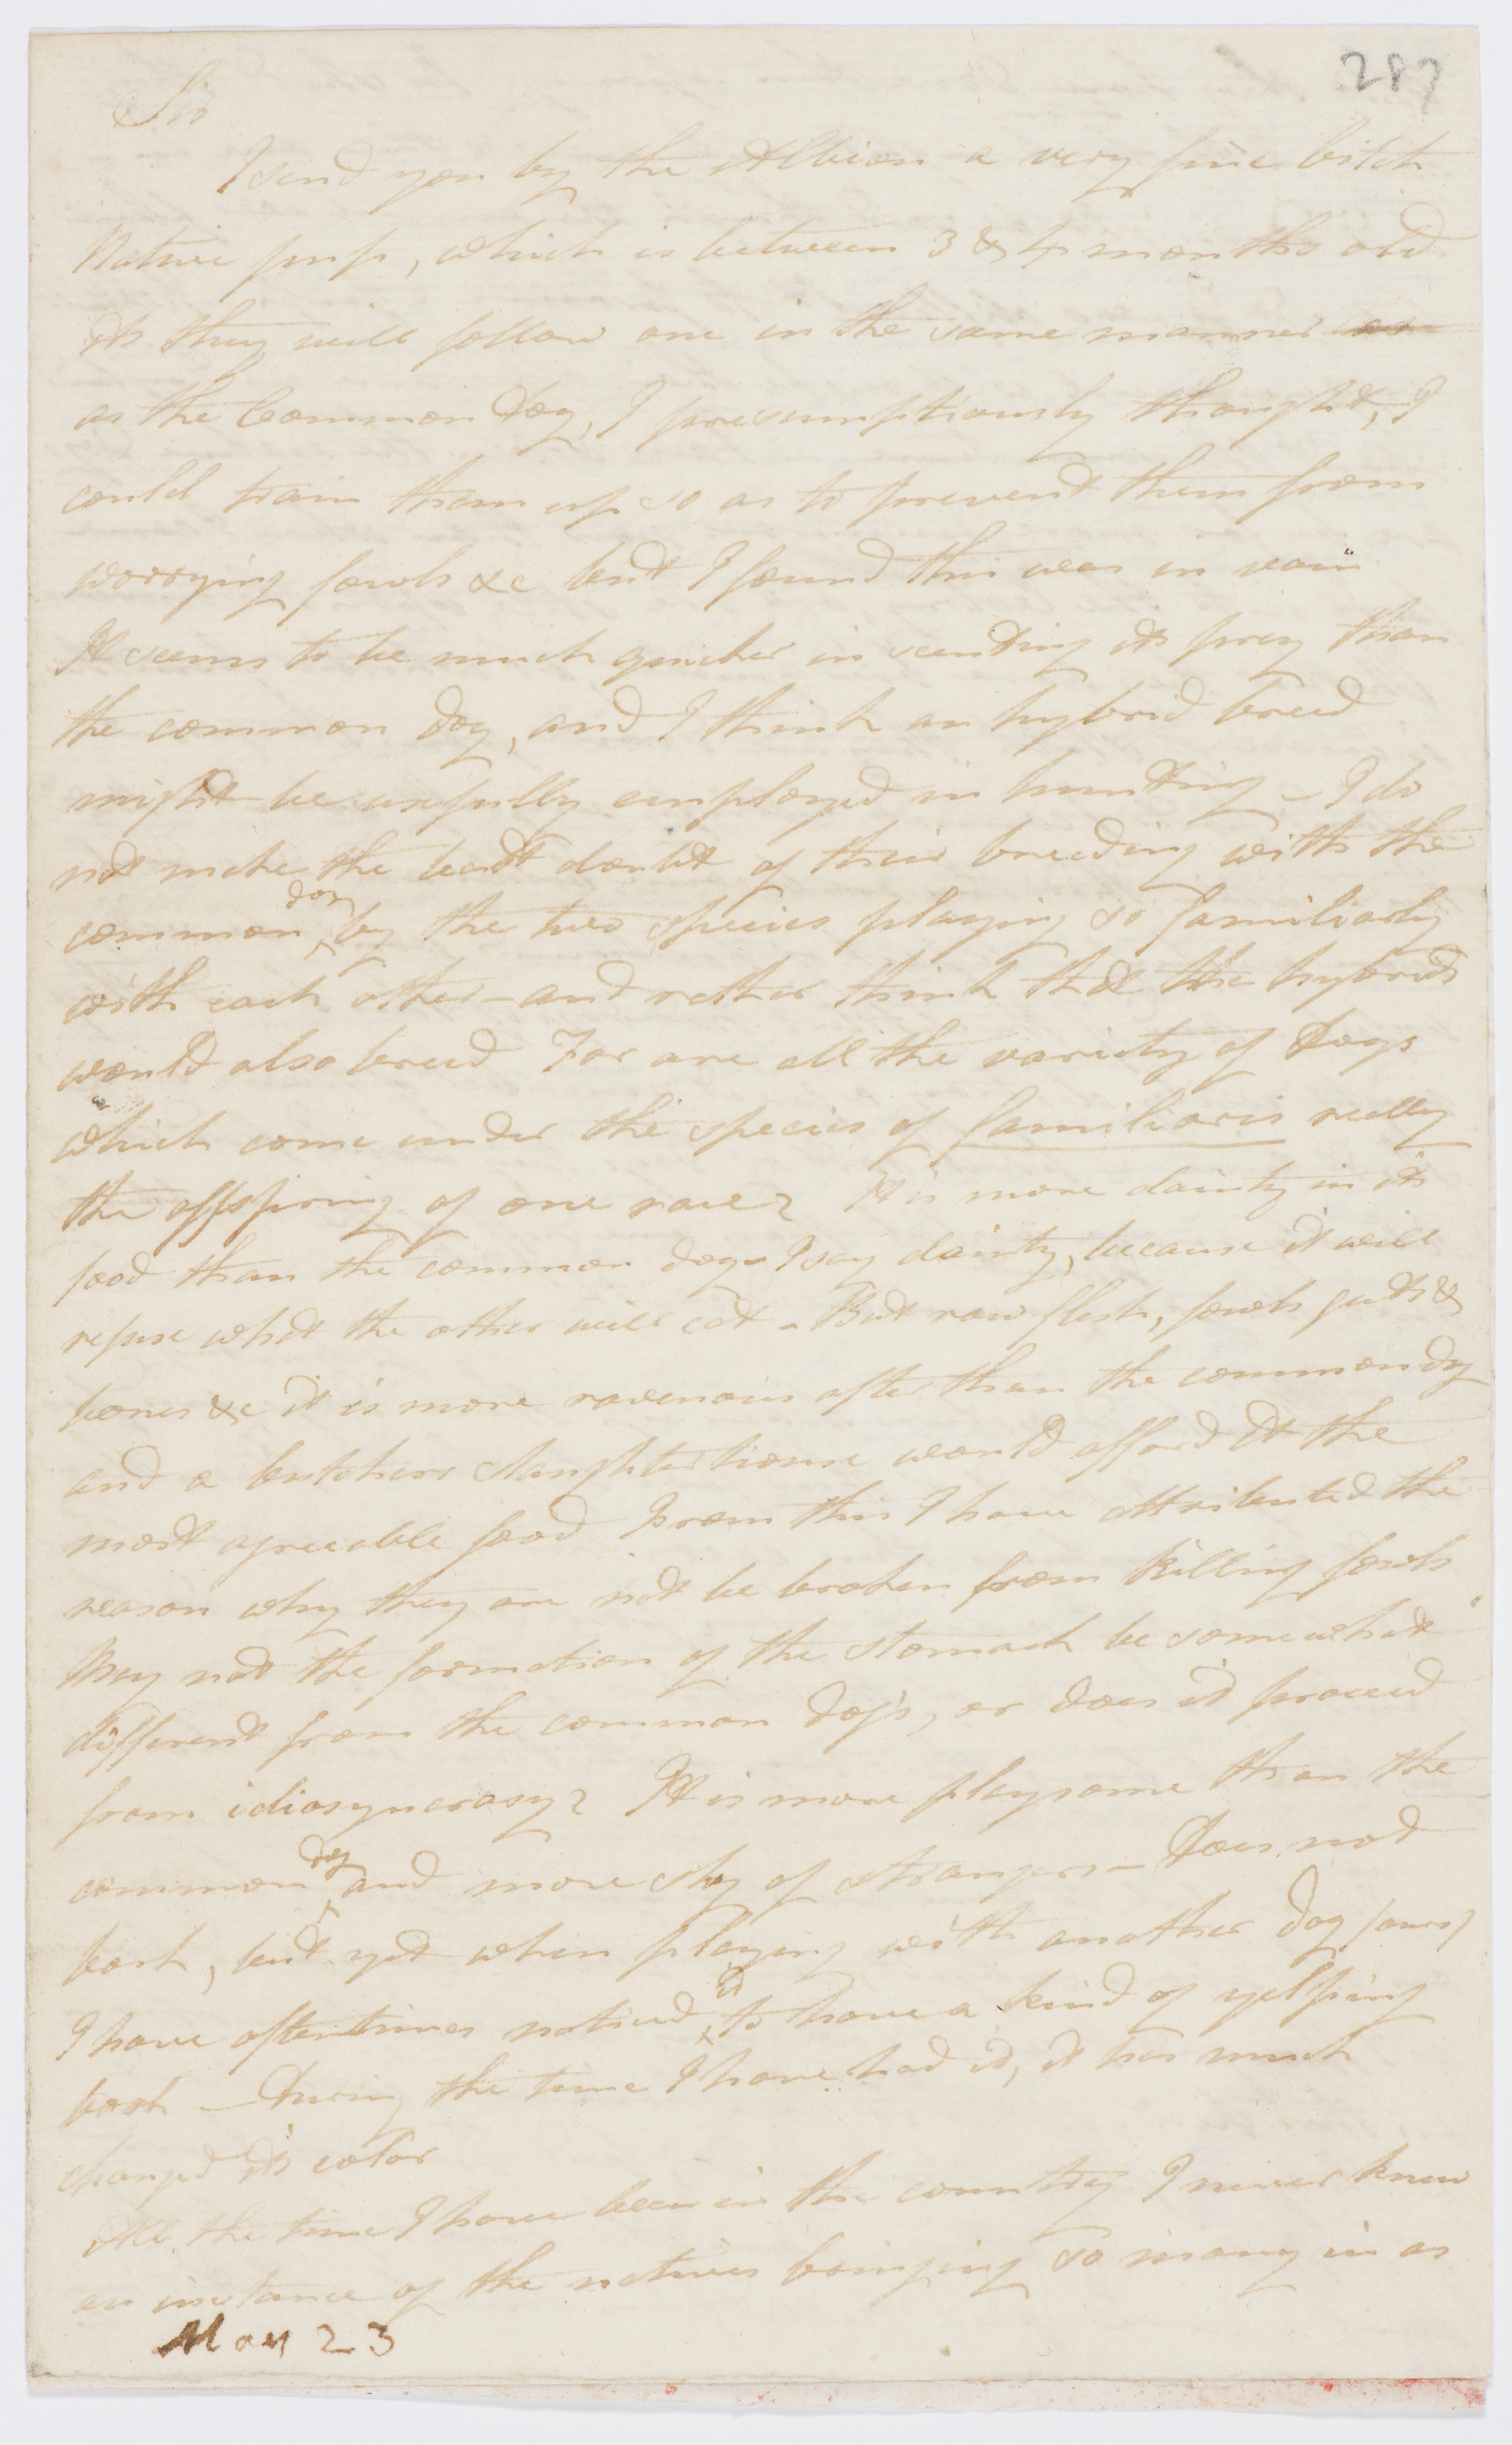 287
Sir
I send you by the Albion a very fine bitch
Native pup, which is between 3 & 4 months old
As they will follow one in the same manner as
as the Common Dog, I presumptiously thought, I
could train them up so as to prevent them from
worrying fowls &c but I found this was in vain
It seems to be much quicker in scenting its prey than
the common dog, and I think an hybrid breed
might be usefully employed in hunting – I do
not make the least doubt of their breeding with the
common dog by the two species playing so familiarly
with each other – and rather think that the hybrids
would also breed For are all the variety of Dogs
which come under the species of familiaris really
the offspring of one race? It is more dainty in its
food than the common dog – I say dainty, because it will
refuse what the other will eat – But raw flesh, fowls guts &
bones &c it is more ravenous after than the common dog
and a butchers slaughter house would afford it the
most agreeable food From this I have attributed the
reason why they are not be broken from killing fowls
May not the formation of the stomach be somewhat
different from the common dog's, or does it proceed
from idiosyncrasy? It is more playsome than the
common dog and more shy of strangers – Does not
bark, but yet when playing with another dog
I have oftentimes noticed it to have a kind of yelping
bark – During the time I have had it, it has much
changed its color
All the time I have been in the country I never knew
an instance of the natives bringing so many in as
May 23